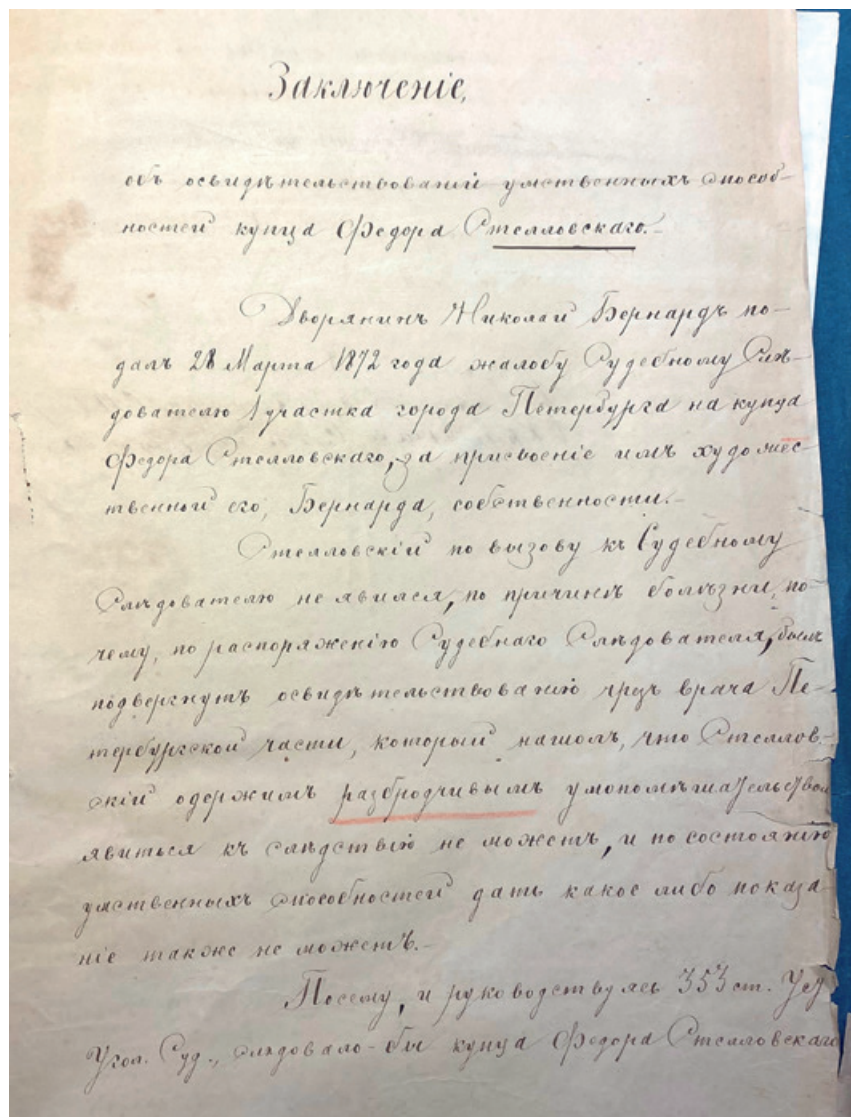 Заключеніе,
объ освидѣтельствованіи умственныхъ способ-
ностей купца Федора Стелловскаго.-
Дворянинъ Николай Бернардъ по-
далъ 28 Марта 1872 года жалобу Судебному Слѣ-
дователю 1 участка города Петербурга на купца
Федора Стелловскаго, за присвоеніе имъ художес-
твенной его, Бернарда, собственности.-
Стелловскій по вызову къ Судебному
Слѣдователю не явился, по причинѣ болѣзни, по-
чему, по распоряженію Судебнаго Слѣдователя, былъ
подвергнутъ освидѣтельствованію чрезъ врача Пе-
тербургской части, который нашолъ, что Стеллов-
скій одержимъ разбродчивымъ умопомѣшательством
явиться къ слѣдствію не можетъ, и по состоянію
умственныхъ способностей дать какое либо показа
ніе также не можетъ.-
Посему, и руководствуясь 353 ст. Уст
Угол. Суд., слѣдовало-бы купца Федора Стелловскаго